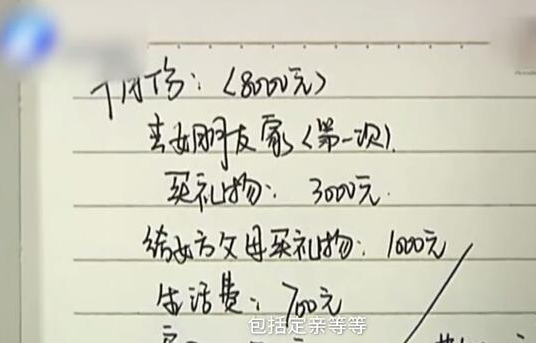 十月份：（8000元）
去女朋友家（第一次）
买礼物：3000元
给女方父母买礼物：1000元
生活费：700元
包括定亲等等